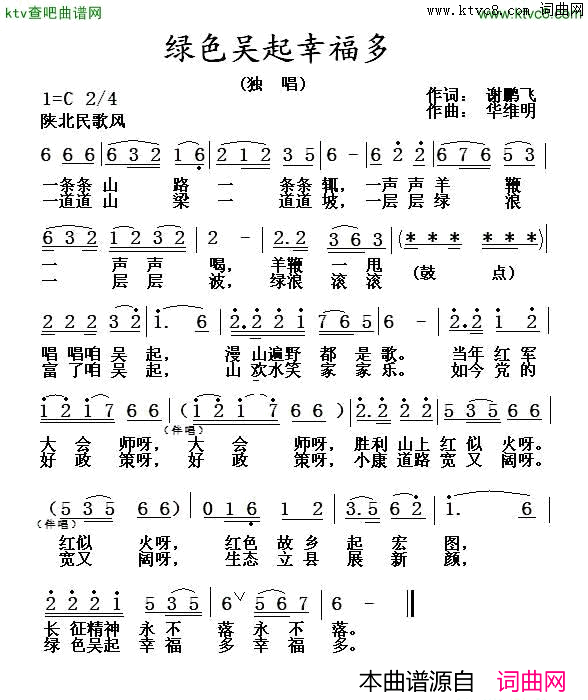 ktv查吧曲谱网
www.ktvc8.com 词曲网
www.ktvc8.com
绿色吴起幸福多
(独 唱)
1=C 2/4
作词: 谢鹏飞
陕北民歌风
作曲: 华维明
6 6 6 | 6 3 2 1 6 | 2 1 2 3 5 | 6 - | 6 2 2 | 6 7 6 5 3 |
一条条 山 路 一 条条 辄, 一声声 羊 鞭
一道道 山 梁 一 道道 坡, 一层层 绿 浪
6 3 2 | 1 2 3 2 | 2 - | 2. 2 | 3 6 3 | (* * * * * *) |
一 声 声 喝, 羊鞭 一 甩 (鼓 点)
一 层 层 波, 绿浪 滚 滚
2 2 2 2 3 2 | 1. 6 | 2. 2 2 1 | 7 6 5 5 | 6 - | 2. 2 1 6 |
唱 唱咱 吴 起, 漫 山遍野 都 是 歌。 当年 红 军
富 了咱 吴 起, 山 欢水笑 家 家 乐。 如今 党 的
1 2 1 7 6 6 | (1 2 1 7 6 6) | 2. 2 2 2 | 5 3 5 5 5 |
(伴唱)
大 会 师呀, 大 会 师呀, 胜利 山上 红 似 火呀。
好 政 策呀, 好 政 策呀, 小康 道路 宽 又 阔呀。
(5 3 5 6 6) | 0 1 6 1 2 | 3. 5 6 2 | 1. 6 |
(伴唱)
红似 火呀, 红色 故 乡 起 宏 图,
宽又 阔呀, 生态 立 县 展 新 颜,
2 2 2 1 | 5 3 5 | 6 ∨ 5 6 7 | 6 - ‖
长 征精神 永 不 落 永 不 落。
绿 色吴起 幸 福 多 幸 福 多。
本曲谱源自 词曲网